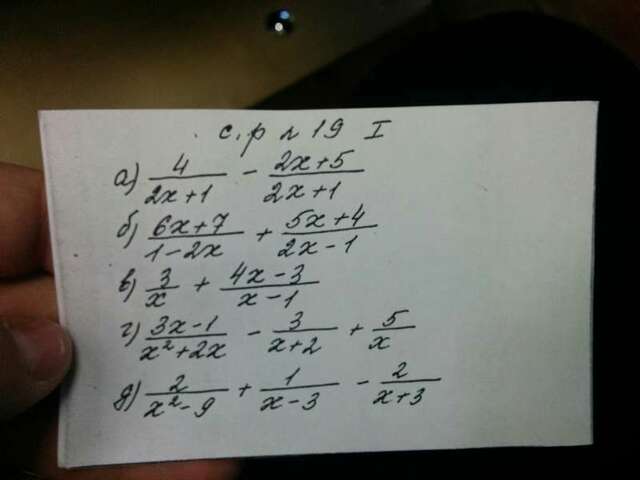 с.р № 19 I
а) 4/(2x+1) - (2x+5)/(2x+1)
б) (6x+7)/(1-2x) + (5x+4)/(2x-1)
в) 3/x + (4x-3)/(x-1)
г) (3x-1)/(x²+2x) - 3/(x+2) + 5/x
д) 2/(x²-9) + 1/(x-3) - 2/(x+3)